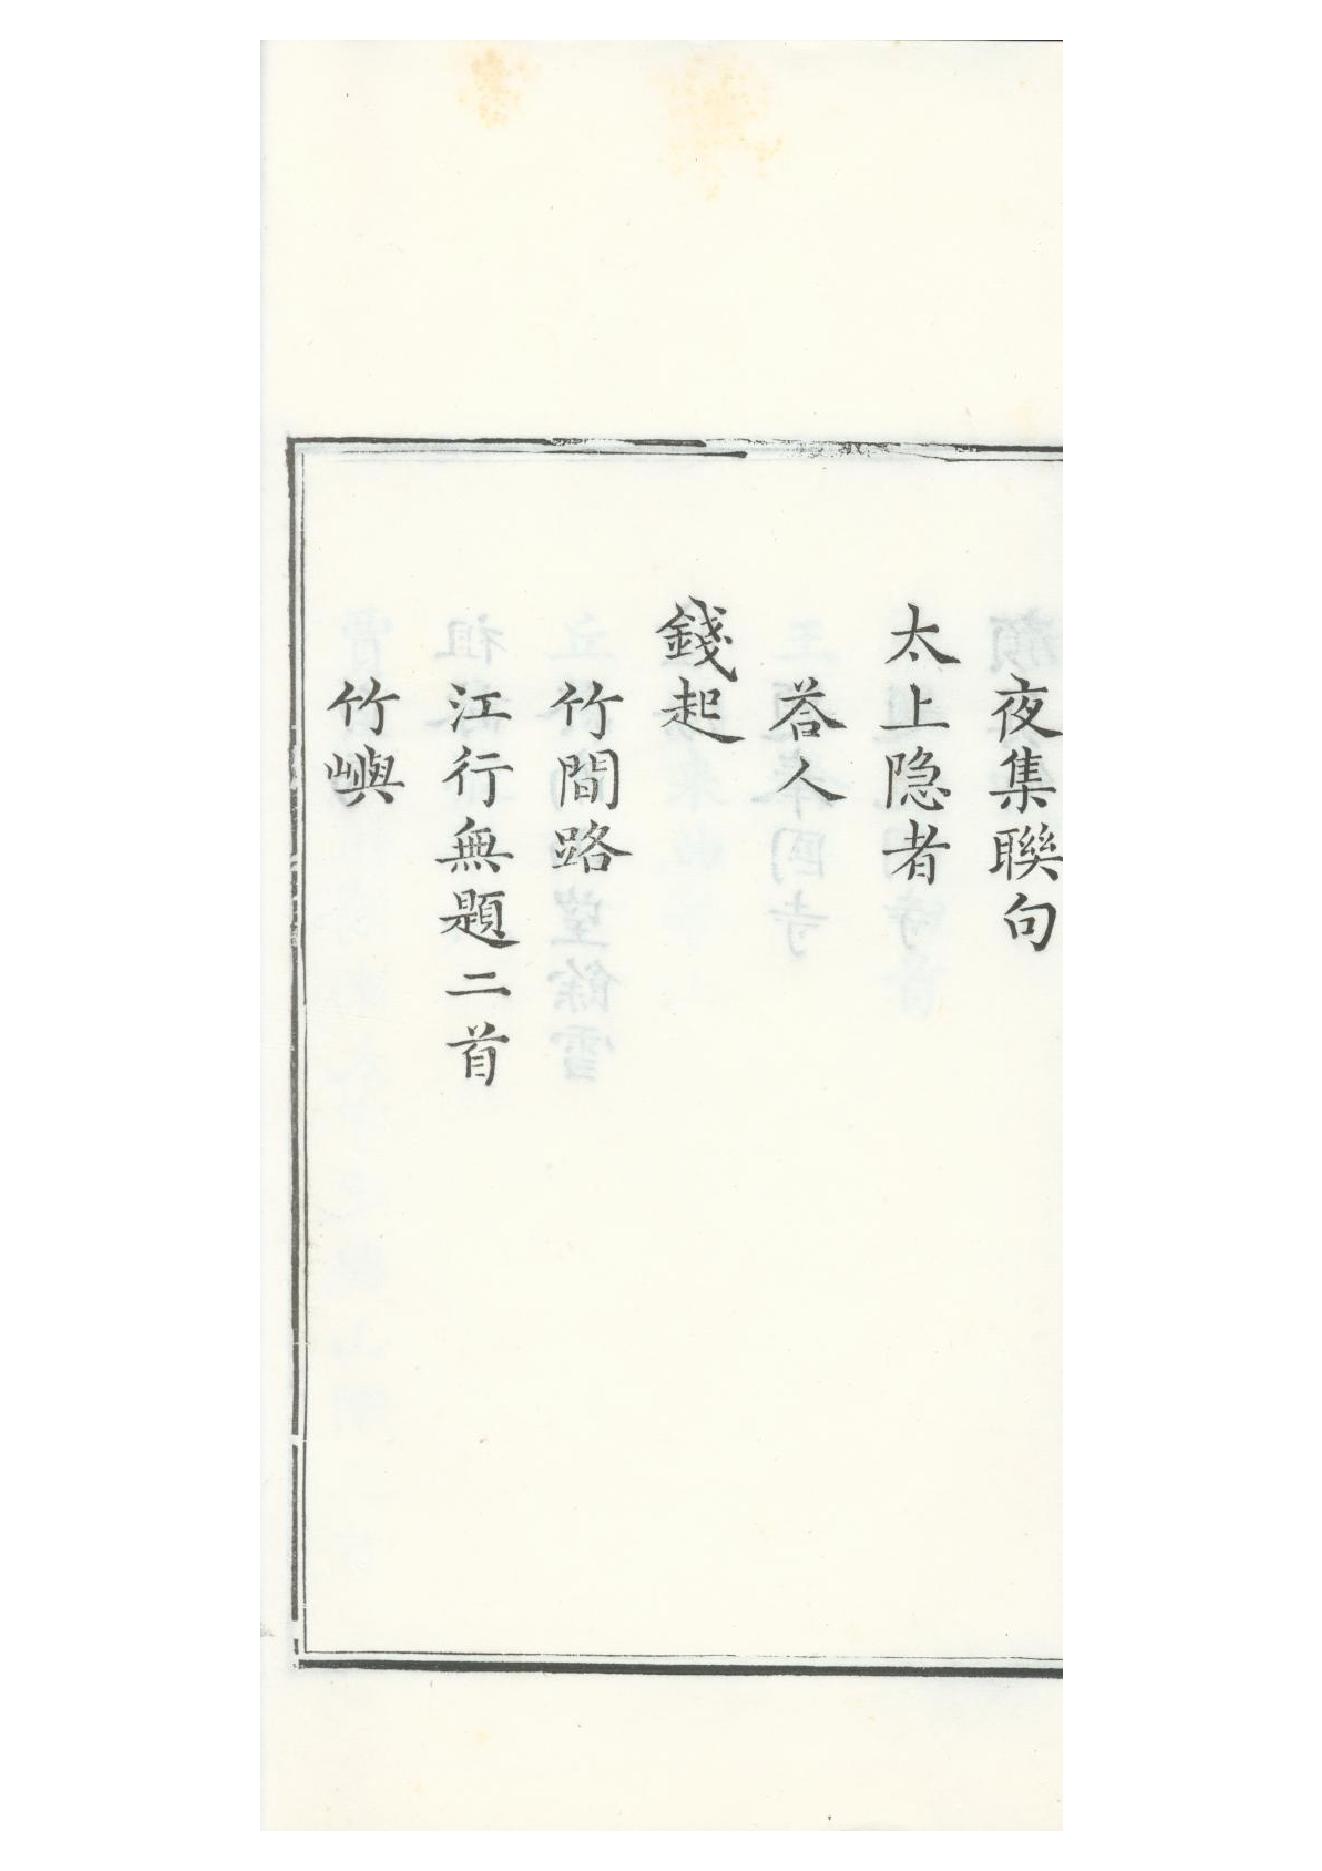 夜集聯句
太上隐者
荅人
錢起
竹間路
江行無題二首
竹嶼